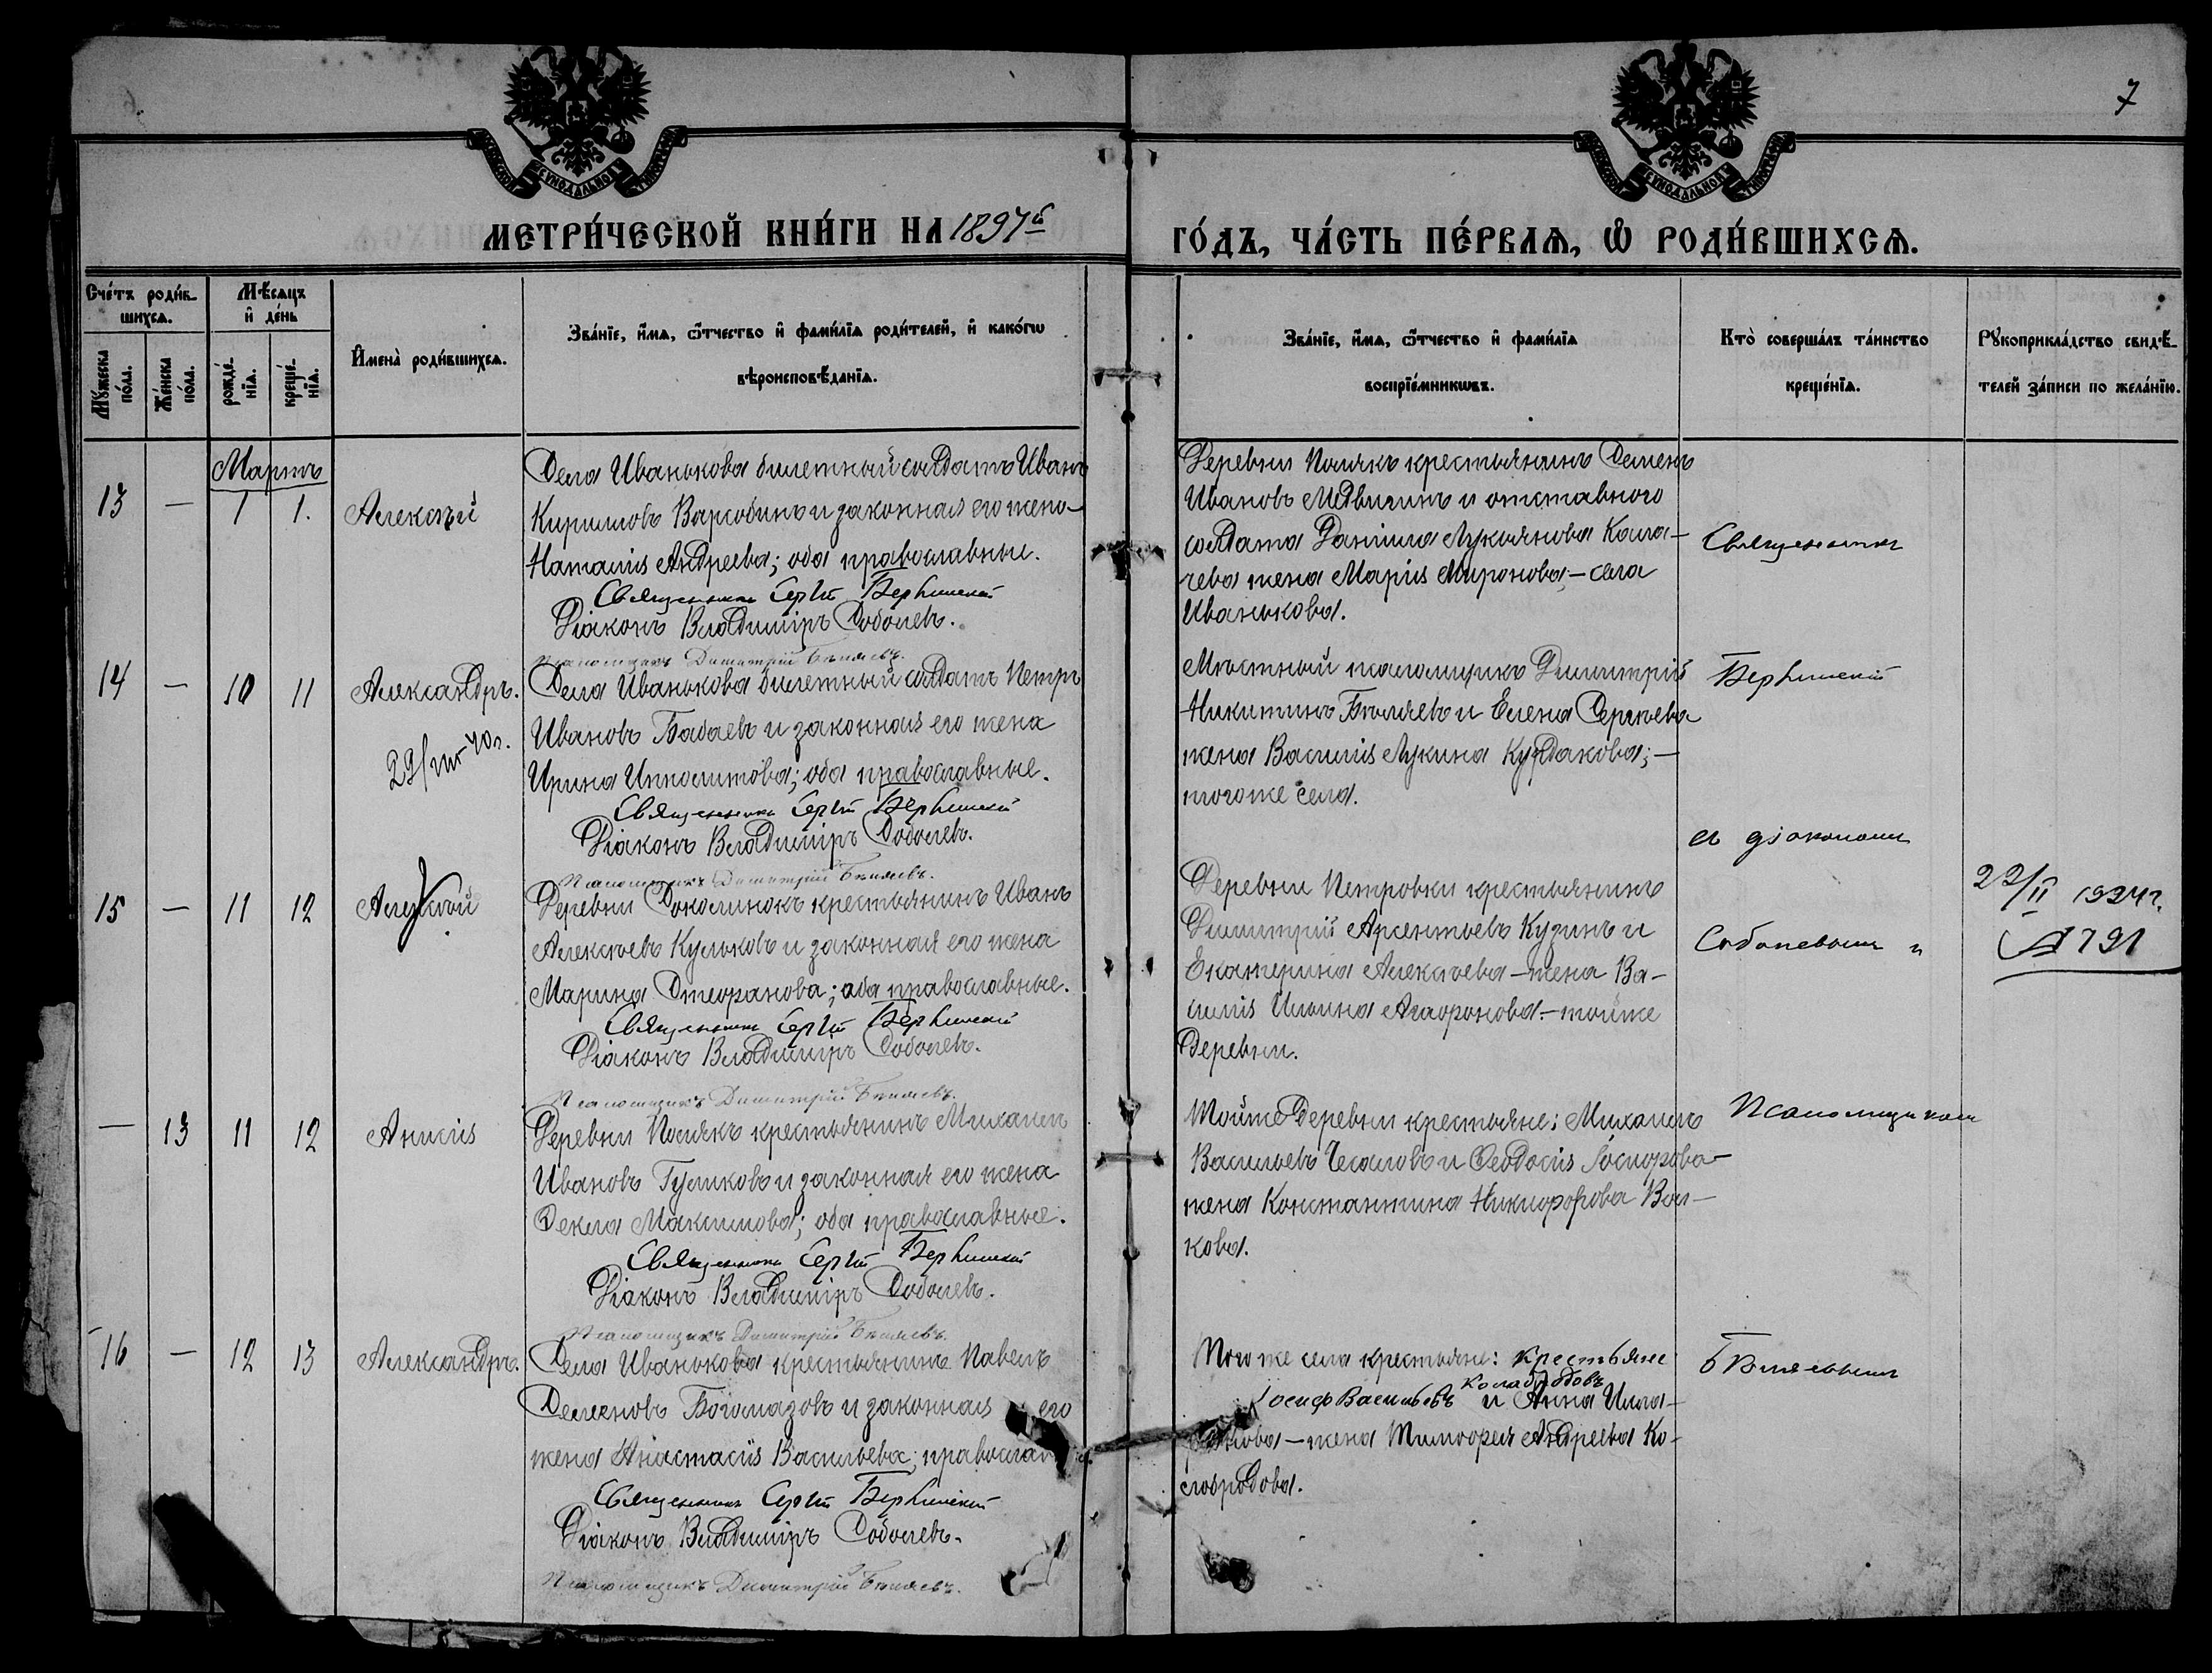 7
МЕТРИ́ЧЕСКОЙ КНИ́ГИ НА 1897й
ГО́ДЪ, ЧА́СТЬ ПЕ́РВАѦ, Ѡ҆ РОДИ́ВШИХСѦ.
Сче́тъ роди́в-
шихсѧ.
Мѣ́сѧцъ
и҆ де́нь
Мꙋ́жеска
по́ла.
Же́нска
по́ла.
рожде́-
нїѧ.
креще́-
нїѧ.
И҆мена̀ роди́вшихсѧ.
Зва́нїе, и҆́мѧ, ѻ҆́тчество и҆ фами́лїѧ роди́телей, и҆ како́гѡ
вѣроисповѣ́данїѧ.
Зва́нїе, и҆́мѧ, ѻ҆́тчество и҆ фами́лїѧ
воспрїе́мникѡвъ.
Кто̀ соверша́лъ та́инство
креще́нїѧ.
Рꙋкоприкла́дство свидѣ́-
телей за́писи по жела́нїю.
Мартъ
13 — 1 1. Алексѣй
Села Иванькова билетный солдатъ Иванъ
Кирилловъ Варсобинъ и законная его жена
Наталія Андреева; оба православные.
Священникъ Сергій
Діаконъ Владиміръ Соболевъ.
Псаломщикъ Димитрій Бѣляевъ.
Деревни Полякъ крестьянинъ Семенъ
Ивановъ и отставного
солдата Даніила Лукьянова Кала-
чева жена Марія Миронова; — села
Иванькова.
Священникъ
14 — 10 11 Александръ.
Села Иванькова билетный солдатъ Петръ
Ивановъ Бабаевъ и законная его жена
Ирина Ипполитова; оба православные.
Священникъ Сергій
Діаконъ Владиміръ Соболевъ.
Псаломщикъ Димитрій Бѣляевъ.
Мѣстный псаломщикъ Димитрій
Никитинъ Бѣляевъ и Елена Сергѣева
жена Василія Лукина Курдакова; —
тогоже села.
съ діакономъ
15 — 11 12
Деревни крестьянинъ Иванъ
Алексѣевъ Кульковъ и законная его жена
Марина Стефанова; оба православные.
Священникъ Сергій
Діаконъ Владиміръ Соболевъ.
Псаломщикъ Димитрій Бѣляевъ.
Деревни Петровки крестьянинъ
Димитрій Арсентьевъ Кузинъ и
Екатерина Алексѣева — жена Ва-
силія Ильина Агафонова. — тойже
деревни.
Соболевымъ и
22/II 1924г.
— 13 11 12 Анисія
Деревни Полякъ крестьянинъ Михаилъ
Ивановъ Гуськовъ и законная его жена
Ѳекла Максимова; оба православные.
Священникъ Сергій
Діаконъ Владиміръ Соболевъ.
Псаломщикъ Димитрій Бѣляевъ.
Тойже деревни крестьяне: Михаилъ
Васильевъ и Ѳеодосія
жена Константина Никифорова Вол-
кова.
Псаломщикомъ
16 — 12 13 Александръ.
Села Иванькова крестьянинъ Павелъ
Семеновъ Богомазовъ и законная его
жена Анастасія Васильева; правосла
Священникъ Сергій
Діаконъ Владиміръ Соболевъ.
Псаломщикъ Димитрій Бѣляевъ.
Того же села крестьяне: крестьяне
Іосифъ Васильевъ и Анна
жена Тимофея Андреева Ко-
Бѣляевымъ